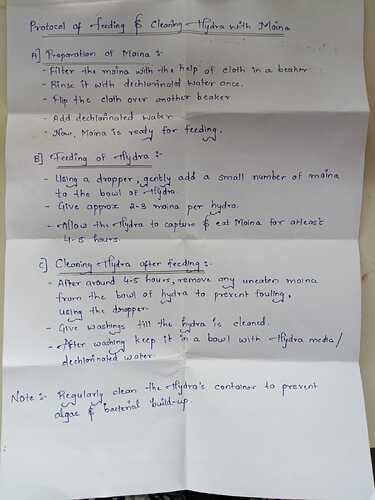 Protocol of feeding & Cleaning Hydra with Moina
A] Preparation of Moina :-
- Filter the moina with the help of cloth in a beaker
- Rinse it with dechlorinated water once.
- Flip the cloth over another beaker
- Add dechlorinated water
- Now, Moina is ready for feeding.
B] Feeding of Hydra :-
- Using a dropper, gently add a small number of moina
to the bowl of Hydra.
- Give approx 2-3 moina per hydra.
- Allow the Hydra to capture & eat Moina for atleast
4-5 hours.
C] Cleaning Hydra after feeding :-
- After around 4-5 hours, remove any uneaten moina
from the bowl of hydra to prevent fouling,
using the dropper
- Give washings till the hydra is cleaned.
- After washing keep it in a bowl with Hydra media/
dechlorinated water
Note :- Regularly clean the Hydra's container to prevent
algae & bacterial build-up.